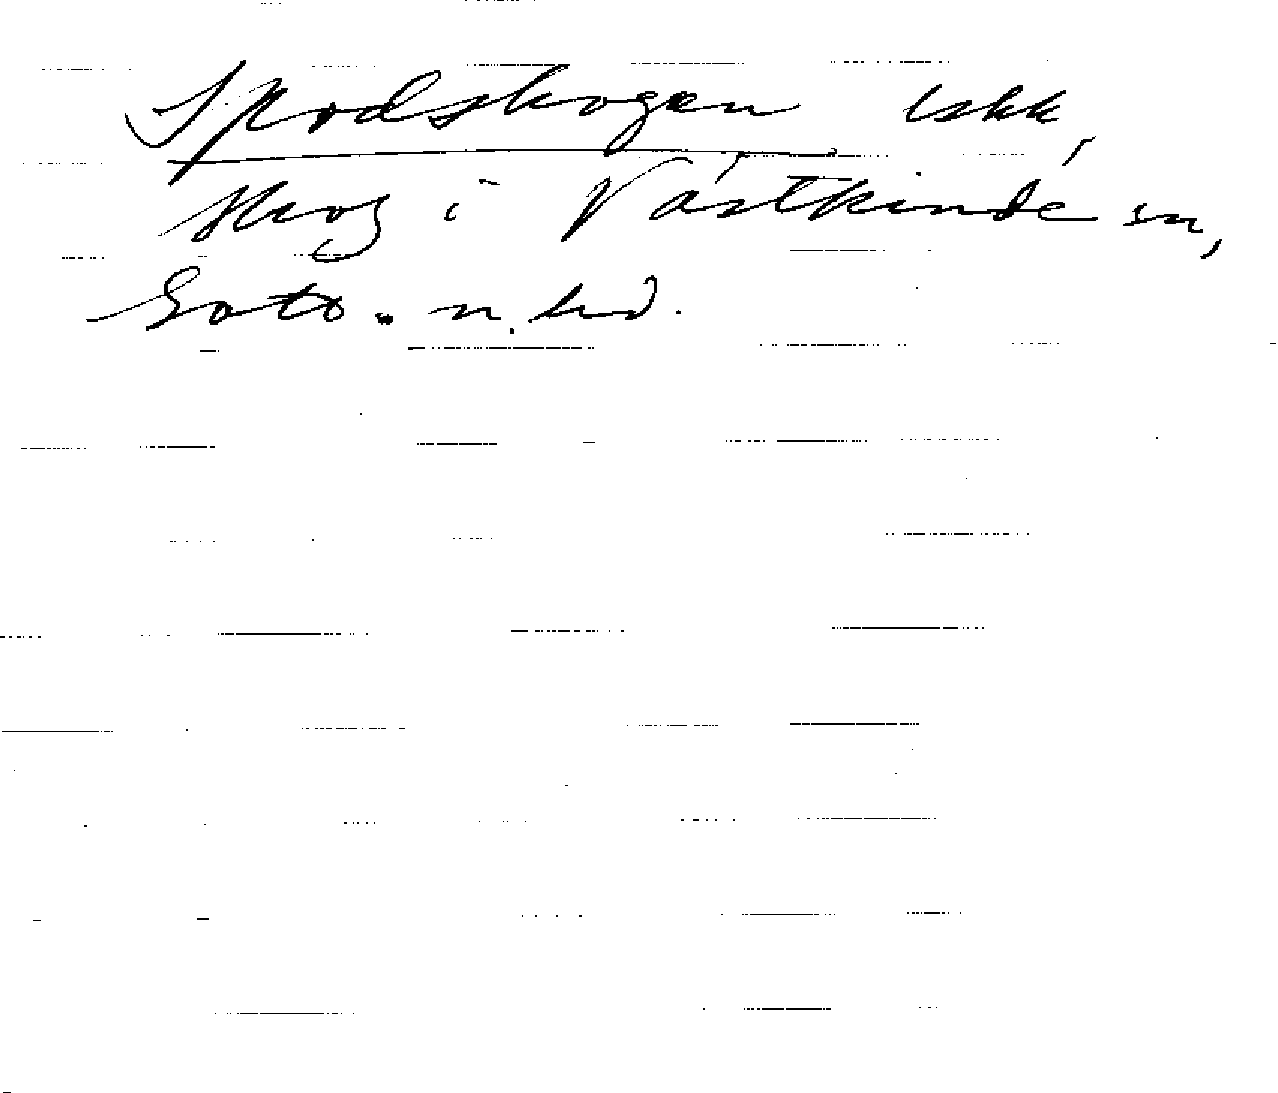 Sprodskogen ekk,
skog i Västkinde sn,
Gotl. n. hd.